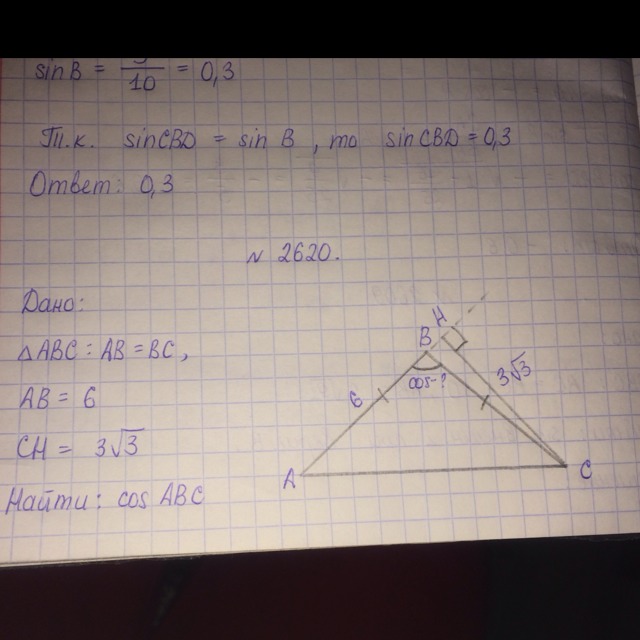 sin B = 3/10 = 0,3
Т.к. sinCBD = sin B, то sinCBD = 0,3
Ответ: 0,3
№ 2620.
Дано:
△ABC: AB = BC,
AB = 6
CH = 3√3
Найти: cos ABC
H
B
3√3
6
cos-?
A
C